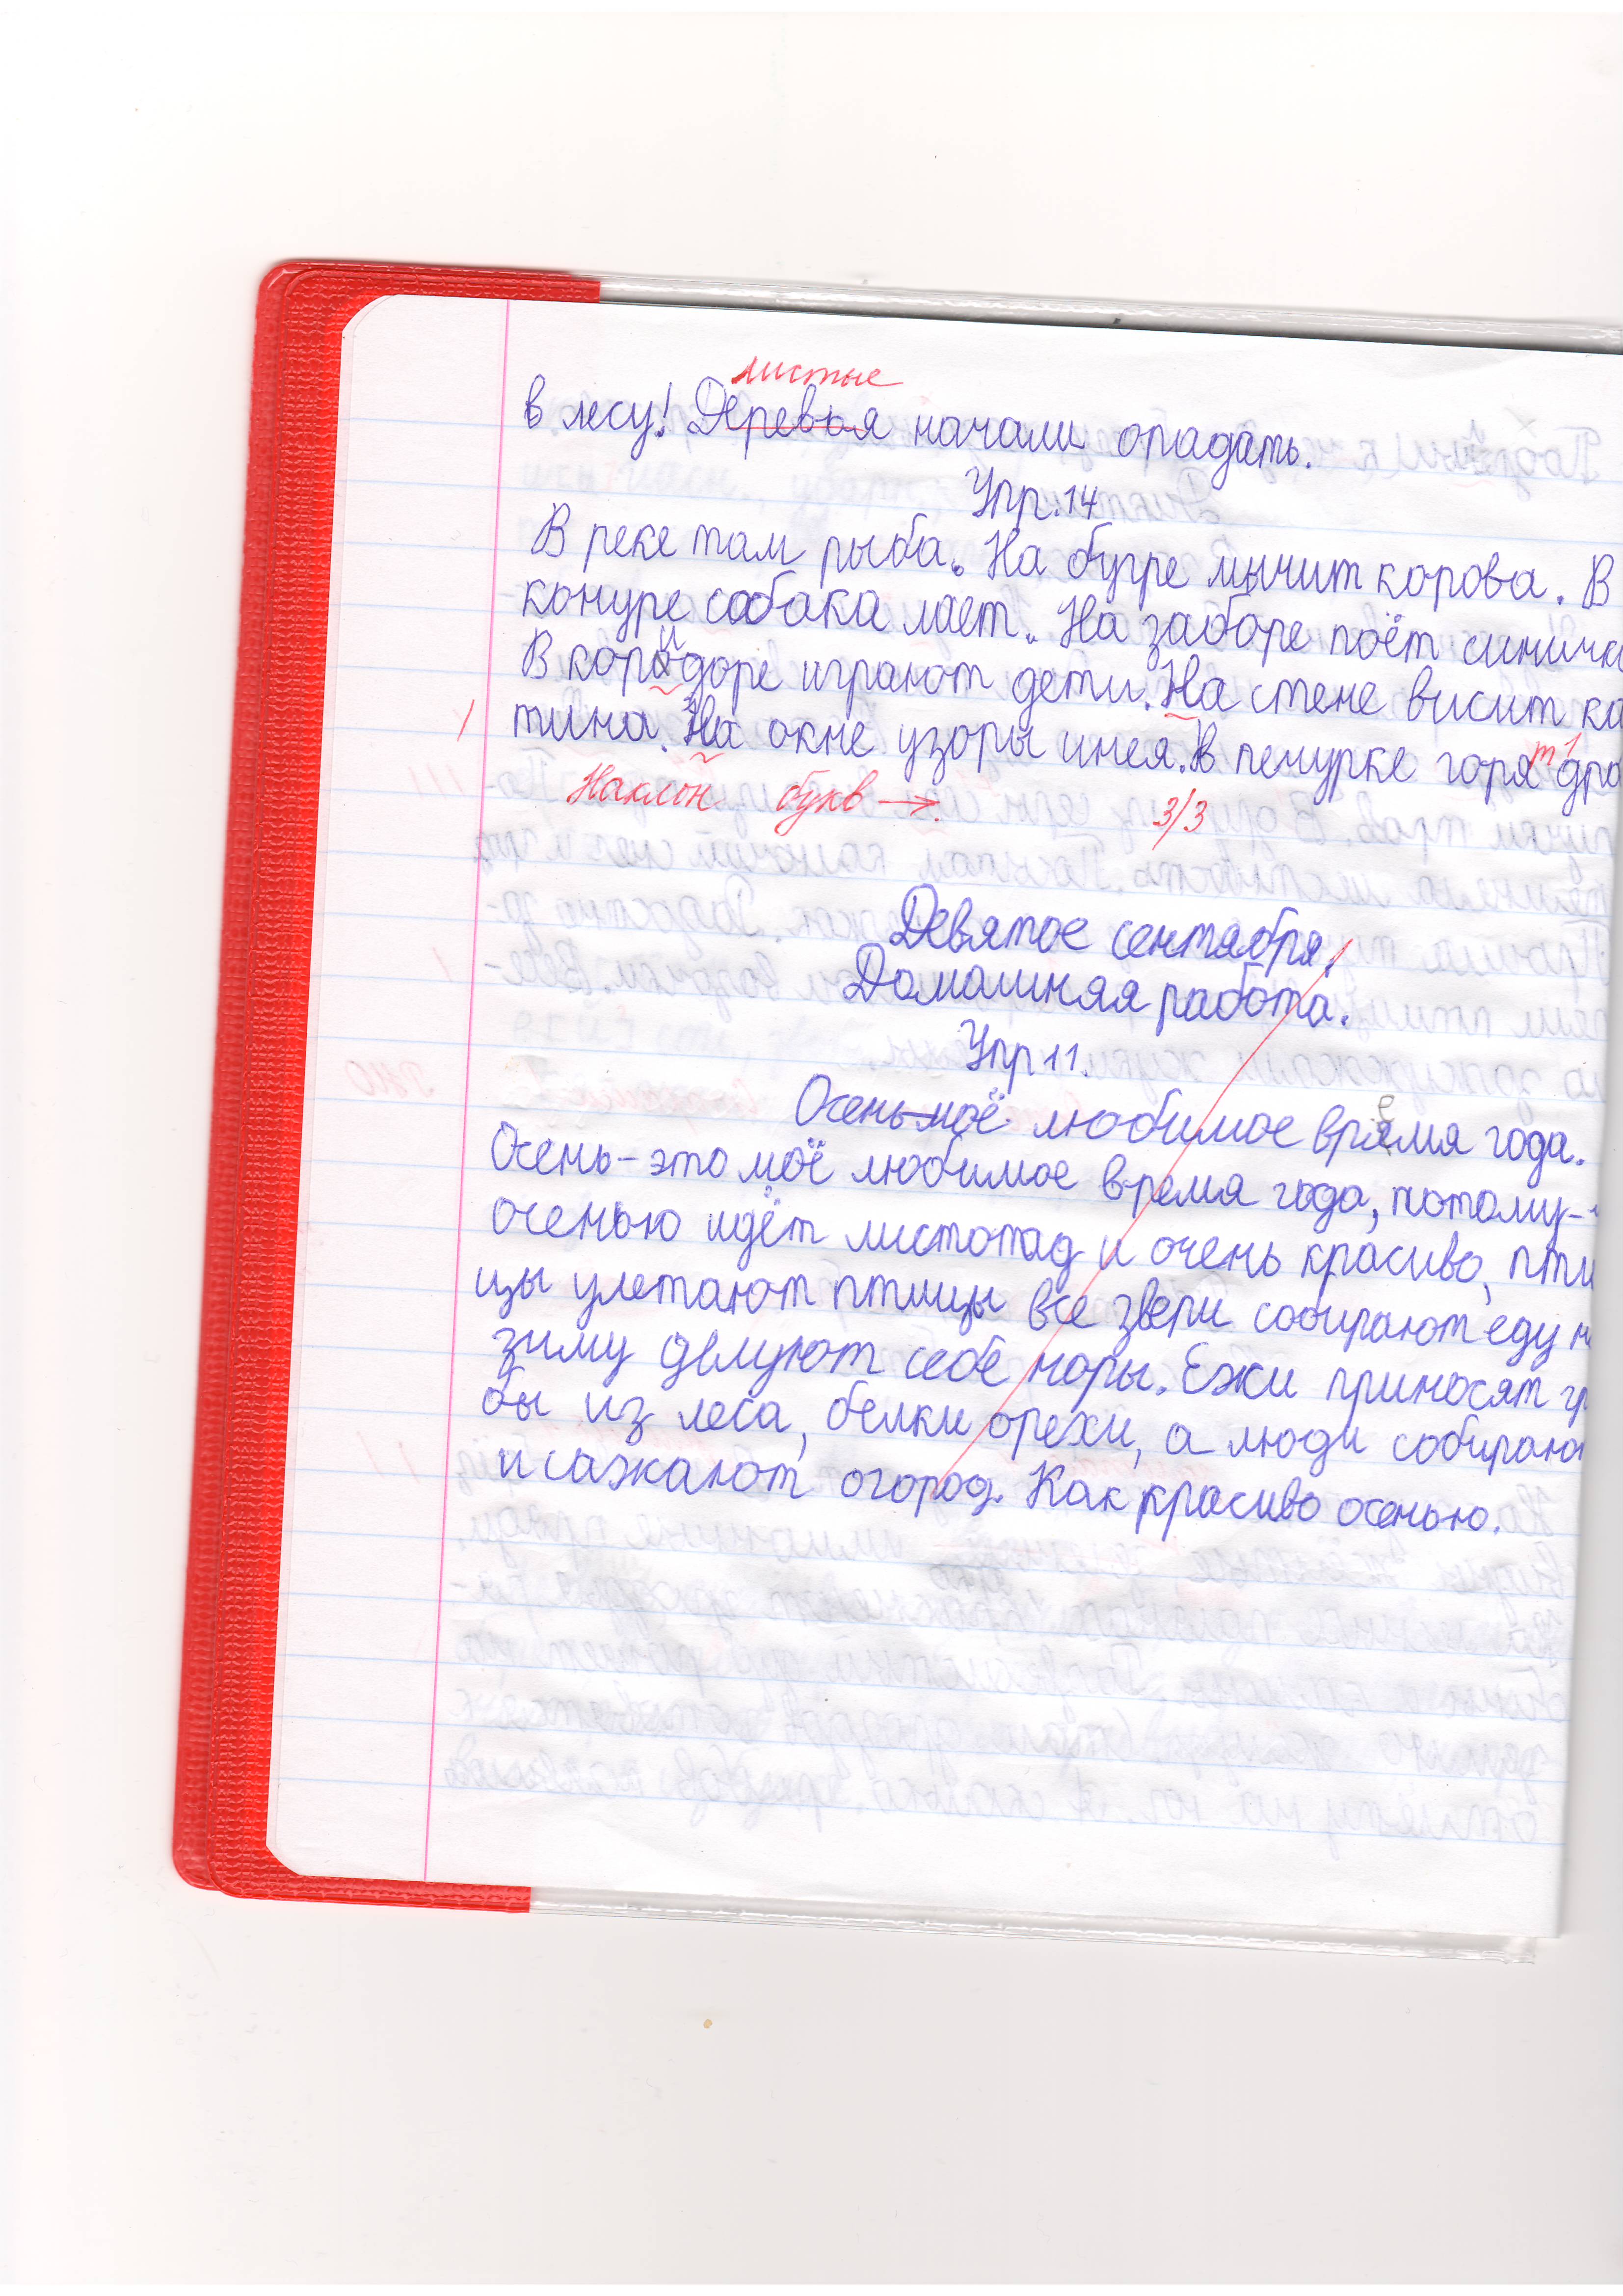 листые
в лесу! Деревья начали опадать.
Упр. 14
В реке там рыба. На бугре мычит корова. В
конуре собака лает. На заборе поёт синичка
В коридоре играют дети. На стене висит ка
тина. На окне узоры инея. В печурке горят дро
Наклон букв → 3/3
Девятое сентября.
Домашняя работа.
Упр 11.
Осень моё любимое время года.
Осень - это моё любимое время года, потому-
осенью идёт листопад и очень красиво, пти
цы улетают птицы все звери собирают еду н
зиму делуют себе норы. Ежи приносят гр
бы из леса, белки орехи, а люди собирают
и сажают огород. Как красиво осенью.